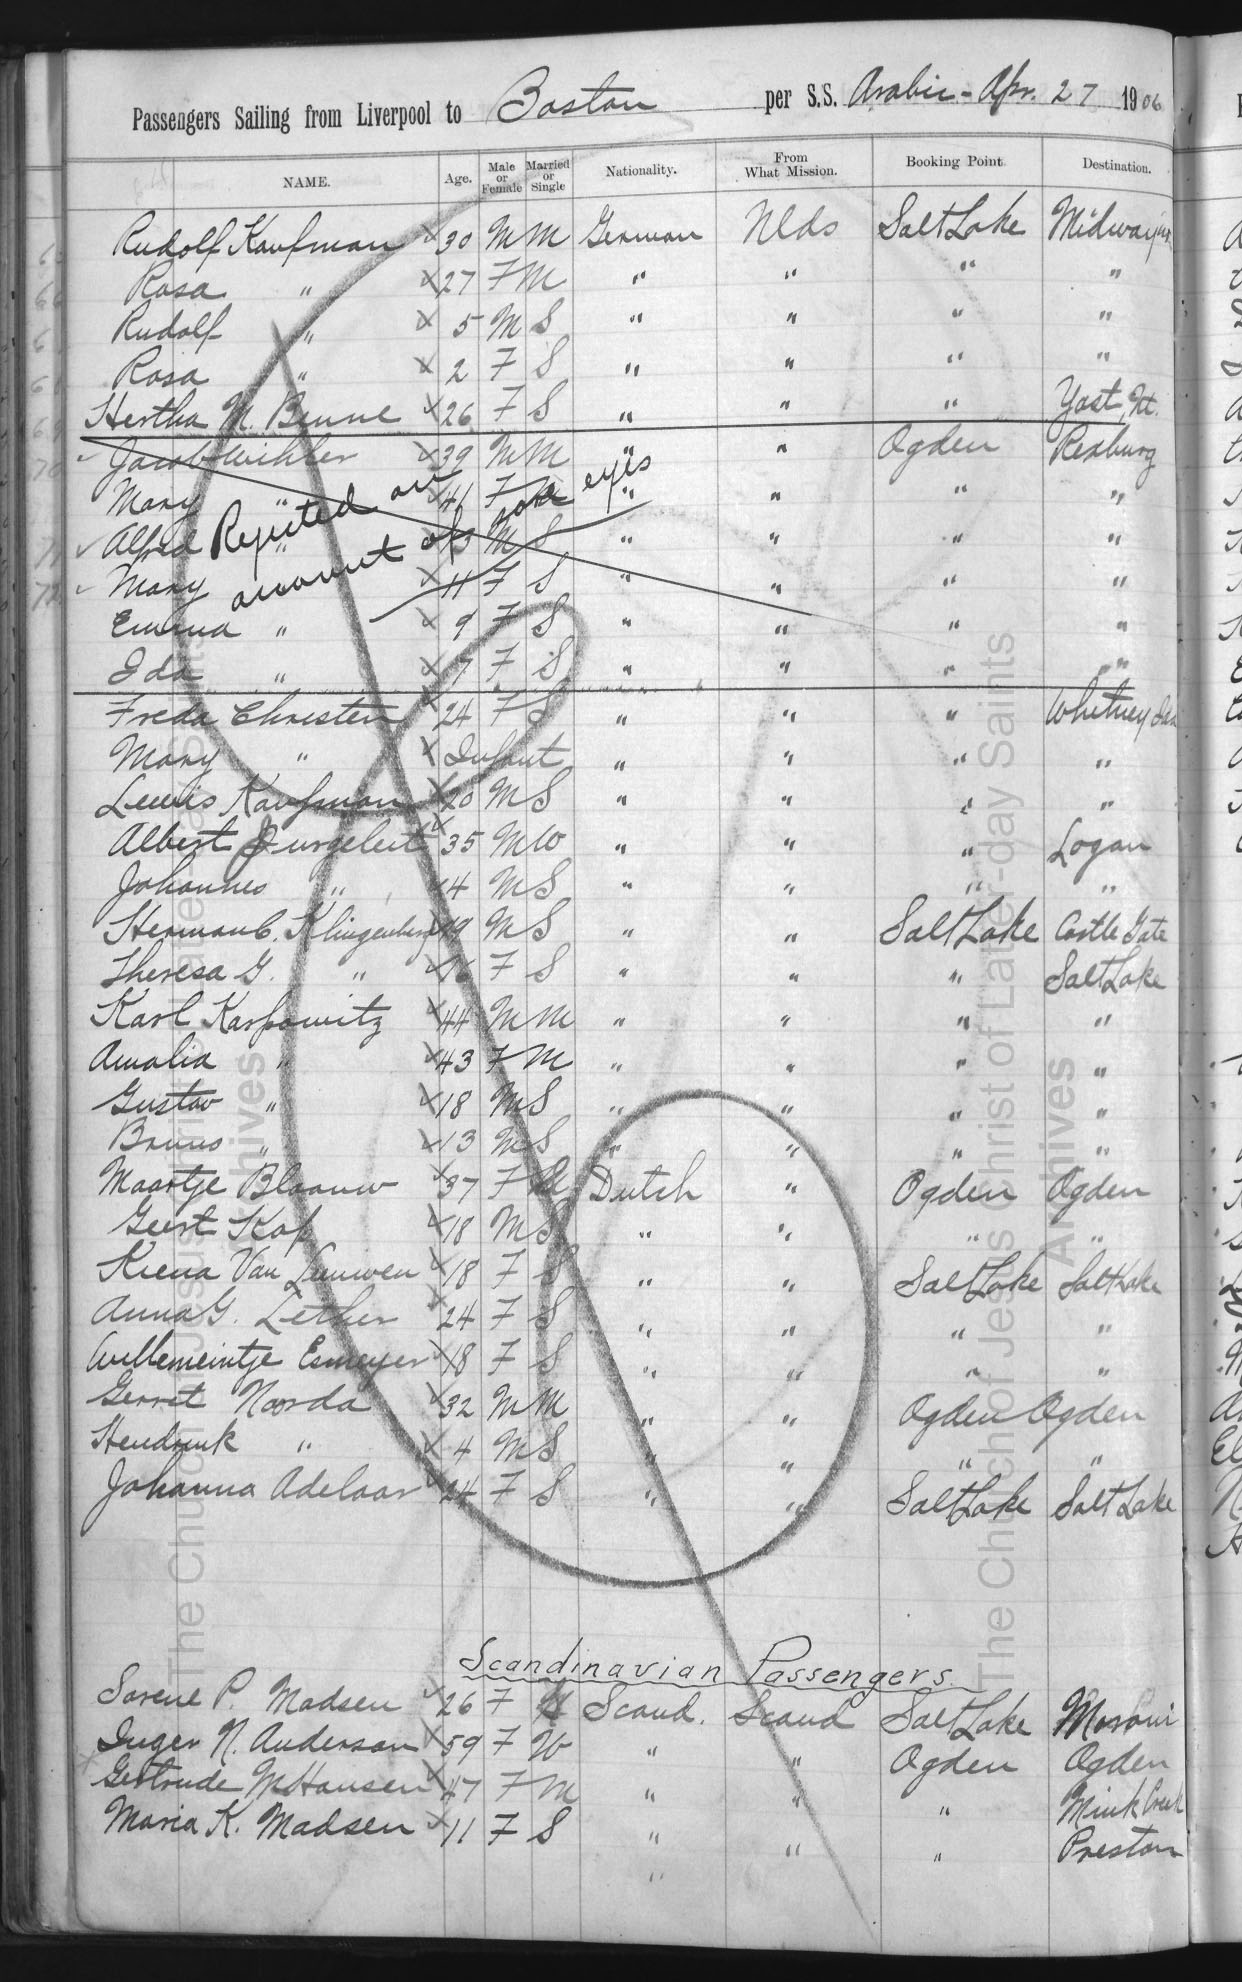 Passengers Sailing from Liverpool to Boston per S.S. Arabic - Apr. 27 1906
NAME. Age. Male or Female Married or Single Nationality. From What Mission. Booking Point. Destination.
Rudolf Kaufman 30 M M German Nlds Salt Lake Midway
Rosa " 27 F M " " " "
Rudolf " 5 M S " " " "
Rosa " 2 F S " " " "
Hertha M. 26 F S " " " Yost, Ut.
Jacob 39 M M " " Ogden Rexburg
Mary " 41 F M " " " "
Alfred " 13 M S " " " "
Mary 11 F S " " " "
Rejected on account of sore eyes
Emma " 9 F S " " " "
Ida " 7 F S " " " "
Freda Christen 24 F S " " " Whitney Ida
Mary " Infant " " " "
Lewis Kaufman 20 M S " " " "
Albert 35 M W " " " Logan
Johannes " 4 M S " " " "
Herman C. Klingenberg 19 M S " " Salt Lake Castle Gate
Theresa G. " F S " " " Salt Lake
Karl Karpowitz 44 M M " " " "
Amalia " 43 F M " " " "
Gustav " 18 M S " " " "
Bruno " 13 M S " " " "
Maartje Blaauw 37 F Dutch " Ogden Ogden
Geert Kap 18 M S " " " "
Kiena Van Leeuwen 18 F S " " Salt Lake Salt Lake
Anna G. Lether 24 F S " " " "
Willemeintje Esmeyer 18 F S " " " "
Gerret Noorda 32 M M " " Ogden Ogden
Hendrick " 4 M S " " " "
Johanna Adelaar 24 F S " " Salt Lake Salt Lake
Scandinavian Passengers.
Sorene P. Madsen 26 F Scand. Scand Salt Lake Moroni
Inger N. Anderson 59 F W " " Ogden Ogden
Gertrude M Hansen 47 F M " " " Mink Creek
Maria K. Madsen 11 F S " " " Preston
The Church of Jesus Christ of Latter-day Saints
Archives
The Church of Jesus Christ of Latter-day Saints
Archives